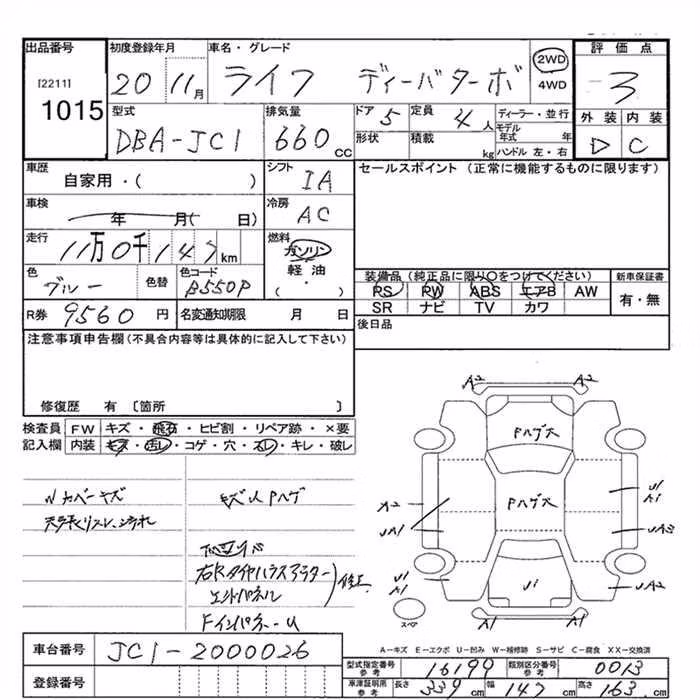 出品番号 初度登録年月 車名・グレード 評価点
[2211] 1015 20 11月 ライフ ディーバターボ 2WD 4WD 3
型式 排気量 ドア 5 定員 4人 ディーラー・並行 外装 内装
DBA-JC1 660cc 形状 積載 kg モデル年式 年 D C
ハンドル 左・右
車歴 シフト セールスポイント (正常に機能するものに限ります)
自家用・( ) IA
車検 年 月( 日) 冷房 AC
走行 11万0千147km 燃料 ガソリン
軽油
・
( )
色 ブルー 色替 色コード B550P
装備品(純正品に限り○をつけてください) 新車保証書
PS PW ABS エアB AW 有・無
SR ナビ TV カワ
R券 9560円 名変通知期限 月 日 後日品
注意事項申告欄(不具合内容等は具体的に記入して下さい)
修復歴 有 〔箇所 〕
検査員 FW キズ・飛石・ヒビ割・リペア跡・×要
記入欄 内装 キズ・汚レ・コゲ・穴・スレ・キレ・破レ
カバーキズ
キズ Pハゲ
右 タイヤハウスアウター
エンドパネル 修正
FインパネーU
A2 A2
Pハゲ大
A2 Pハゲ大 U1 A1
UA1 UA3
U1 A1 U1 UA2
スペア A1 A1
A-キズ E-エクボ U-凹み W-補修跡 S-サビ C-腐食 XX-交換済
車台番号 JC1-2000026
登録番号
型式指定番号 参考 16199 類別区分番号 参考 0013
車庫証明用 参考 長さ 339cm 幅 147cm 高さ 163cm